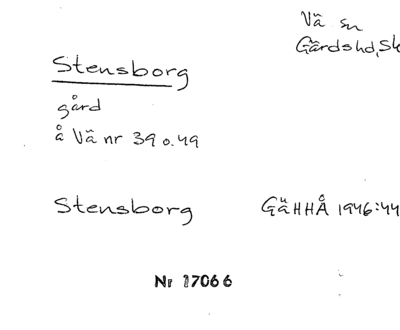 Vä sn
Gärdshd, Sk
Stensborg
gård
å Vä nr 39 o. 49
Stensborg GäHHÅ 1946:44
Nr 17066